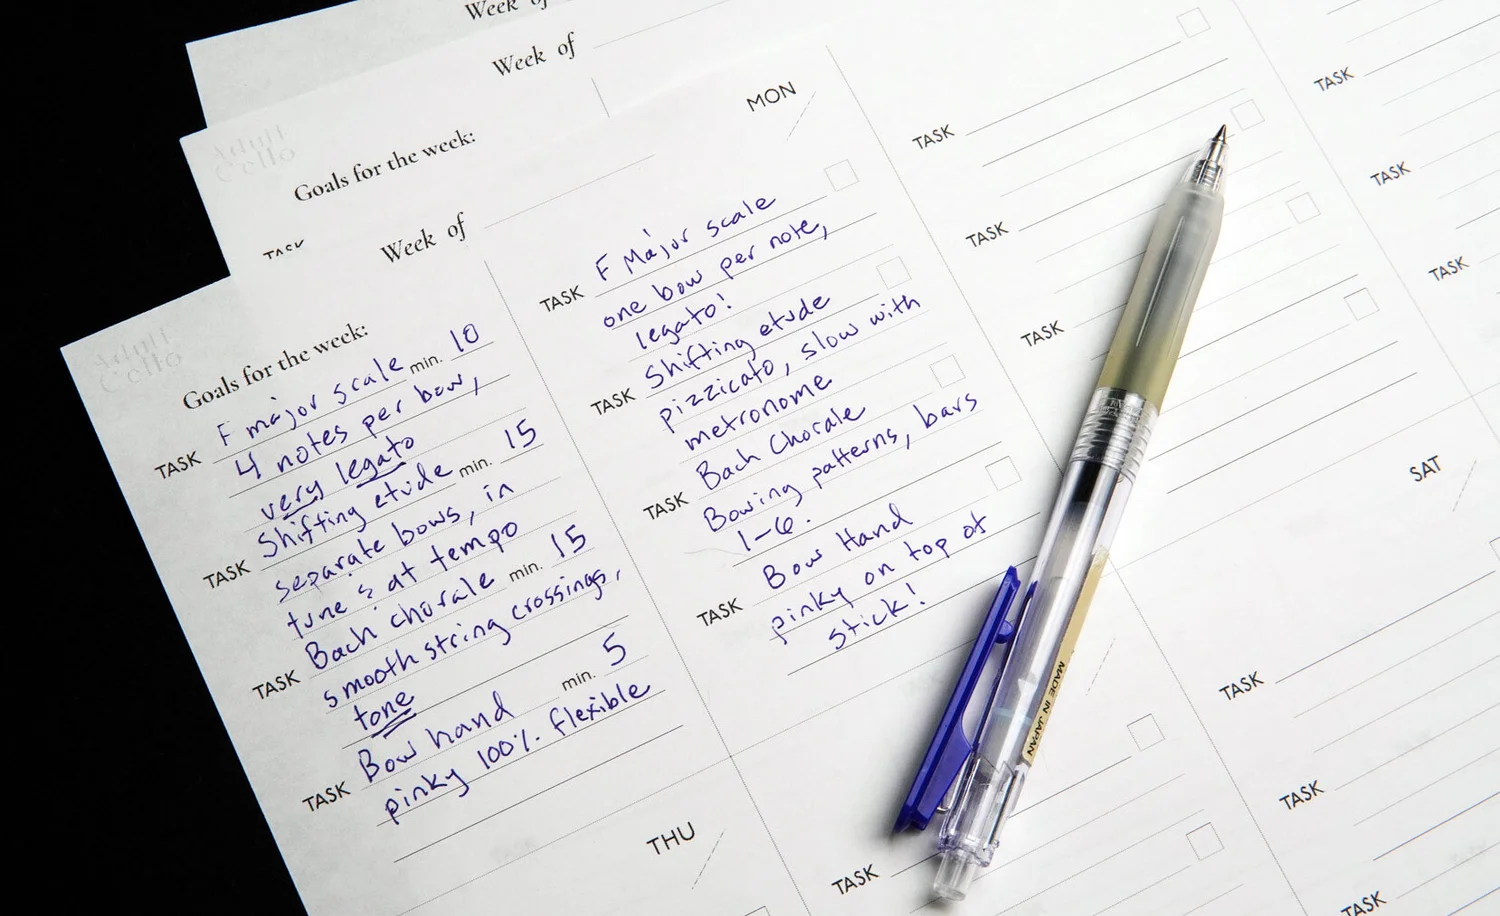 Week of
Week of
Goals for the week:
TASK
Week of
Adult
Cello
Goals for the week:
TASK F major scale min. 10
4 notes per bow,
very legato
TASK Shifting etude min. 15
separate bows, in
tune & at tempo
TASK Bach chorale min. 15
smooth string crossings,
tone
TASK Bow hand min. 5
pinky 100% flexible
MON
TASK F Major scale
one bow per note,
legato!
TASK Shifting etude
pizzicato, slow with
metronome
TASK Bach Chorale
Bowing patterns, bars
1-6.
TASK Bow Hand
pinky on top of
stick!
THU
TASK
TASK
TASK
TASK
MADE IN JAPAN
TASK
TASK
TASK
SAT
TASK
TASK
TASK